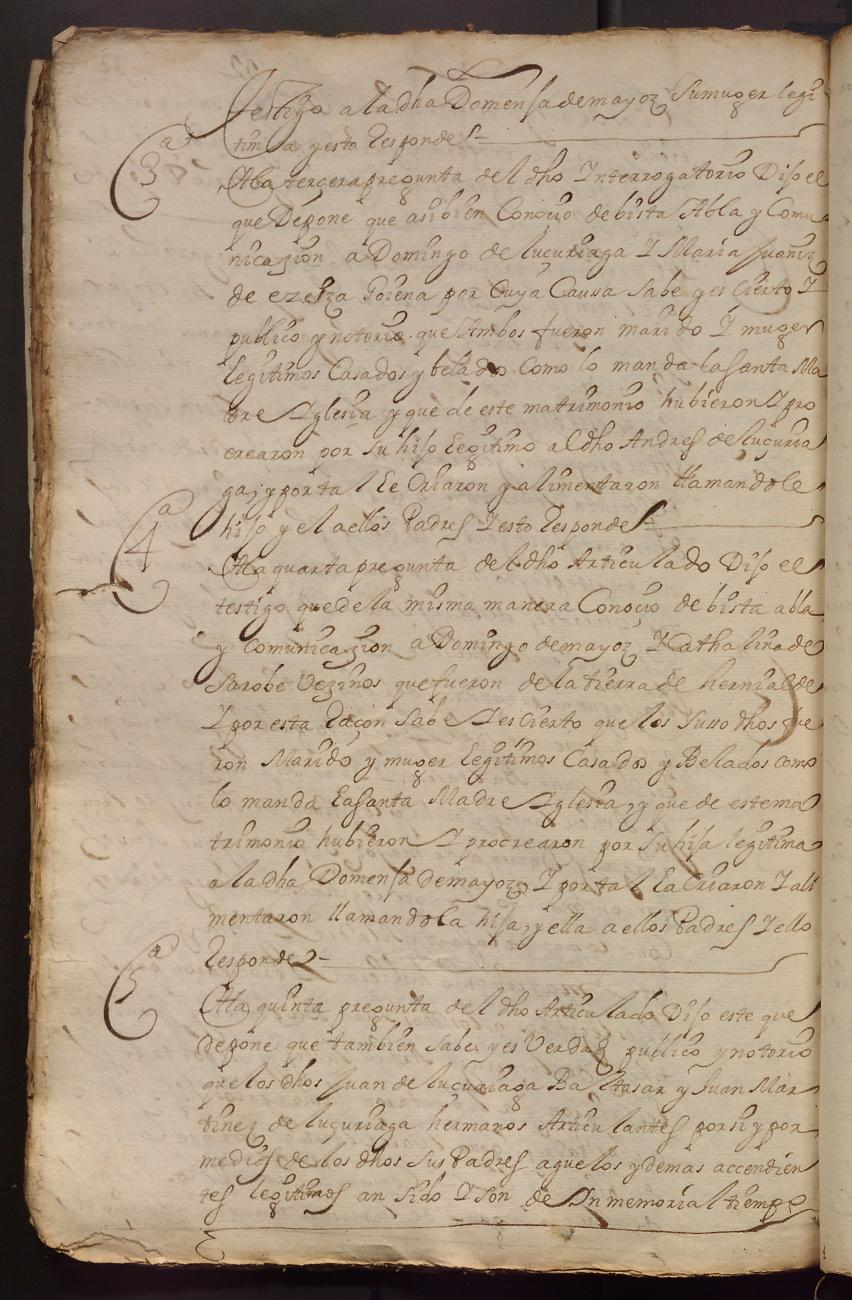 testigo a la dha Domensa de mayoz su muger legi
tima y esto Responde
3ª
A la tercera pregunta del dho Interrogatorio Dijo el
que Depone que asibien Conocio de bista Abla y Comu
nicazion a Domingo de luçuriaga Y Maria Juaniz
de ezeiza Goiena por Cuya Causa Sabe y es Cierto Y
publico y notorio que Ambos fueron marido Y muger
legitimos Casados y belados Como lo manda la Santa Ma
dre Yglesia y que de este matrimonio hubieron Y pro
crearon por su hijo legitimo al dho Andres de luçuria
ga, y por tal le Criaron y alimentaron llamandole
hijo y el a ellos Padres Y esto Responde
4ª
A la quarta pregunta del dho Articulado Dijo el
testigo que de la misma manera Conocio de bista abla
y Comunicazion a Domingo de mayoz Y Cathalina de
Sarobe Vezinos que fueron de la tierra de hernialde
Y por esta Raçon Sabe Y es Cierto que los Susso dhos fue
ron Marido y muger legitimos Casados y Belados Como
lo manda la Santa Madre Yglesia, y que de este ma
trimonio hubieron Y procrearon por Su hija legitima
a la dha Domensa de mayoz, Y por tal la Criaron Y ali
mentaron llamandola hija, y ella a ellos Padres Y ello
Responde
5ª
A la quinta pregunta del dho Articulado Dijo este que
depone que tambien Sabe, y es Verdad publico y notorio
que los dhos Juan de luçuriaga Baltasar y Juan Mar
tinez de luçuriaga hermanos Articulantes por si y por
medios de los dhos Sus Padres aguelos y demas accendien
tes legitimos an Sido Y Son de Ynmemorial tiempo